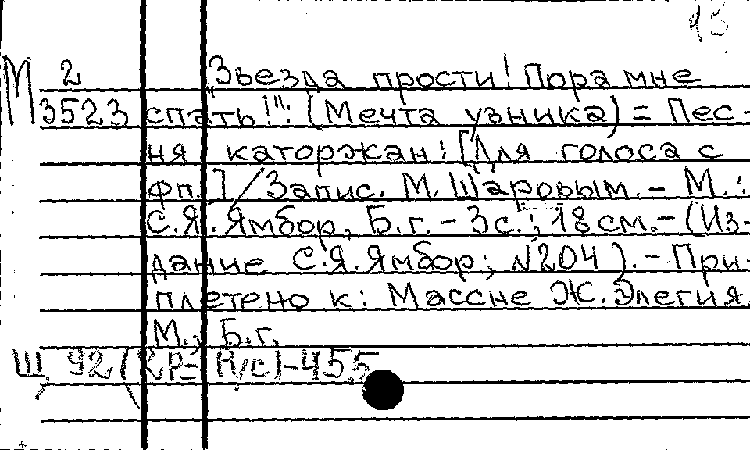 13
М 2 "Звезда прости! Пора мне
3523 спать!": (Мечта узника) = Пес-
ня каторжан: [Для голоса с
фп.] / Запис. М. Шаровым. - М.:
С.Я. Ямбор, Б.г. - 3с.; 18см. - (Из-
дание С.Я. Ямбор; №204). - При-
плетено к: Массне Ж. Элегия.
М., Б.г.
Щ 92 (2Р-